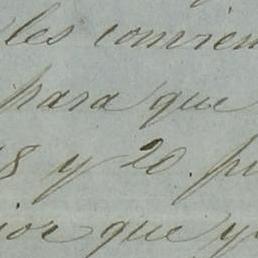 les convien
para que
18 y 20. pu
ior que y